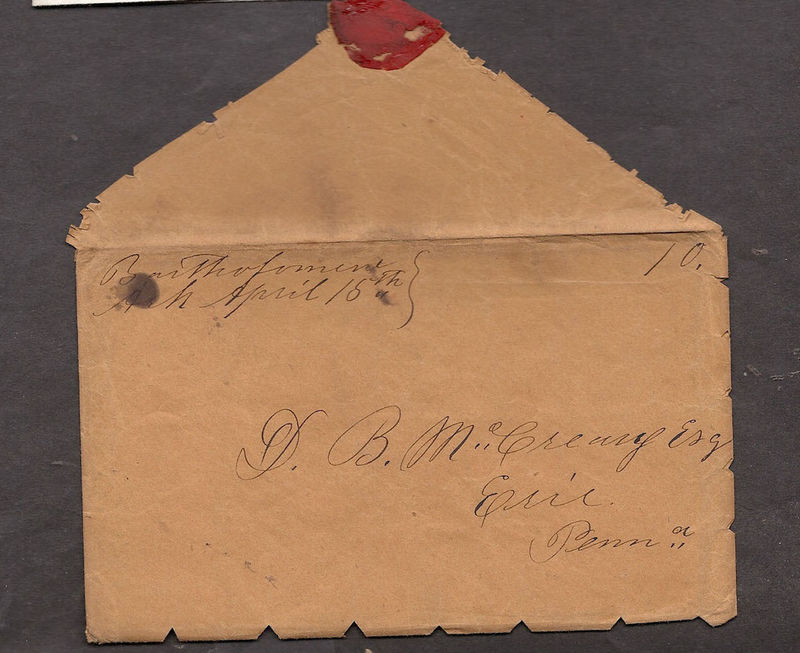 Bartholomew 10.
Ark April 15th
D. B. McCreary Esq
Erie
Penna